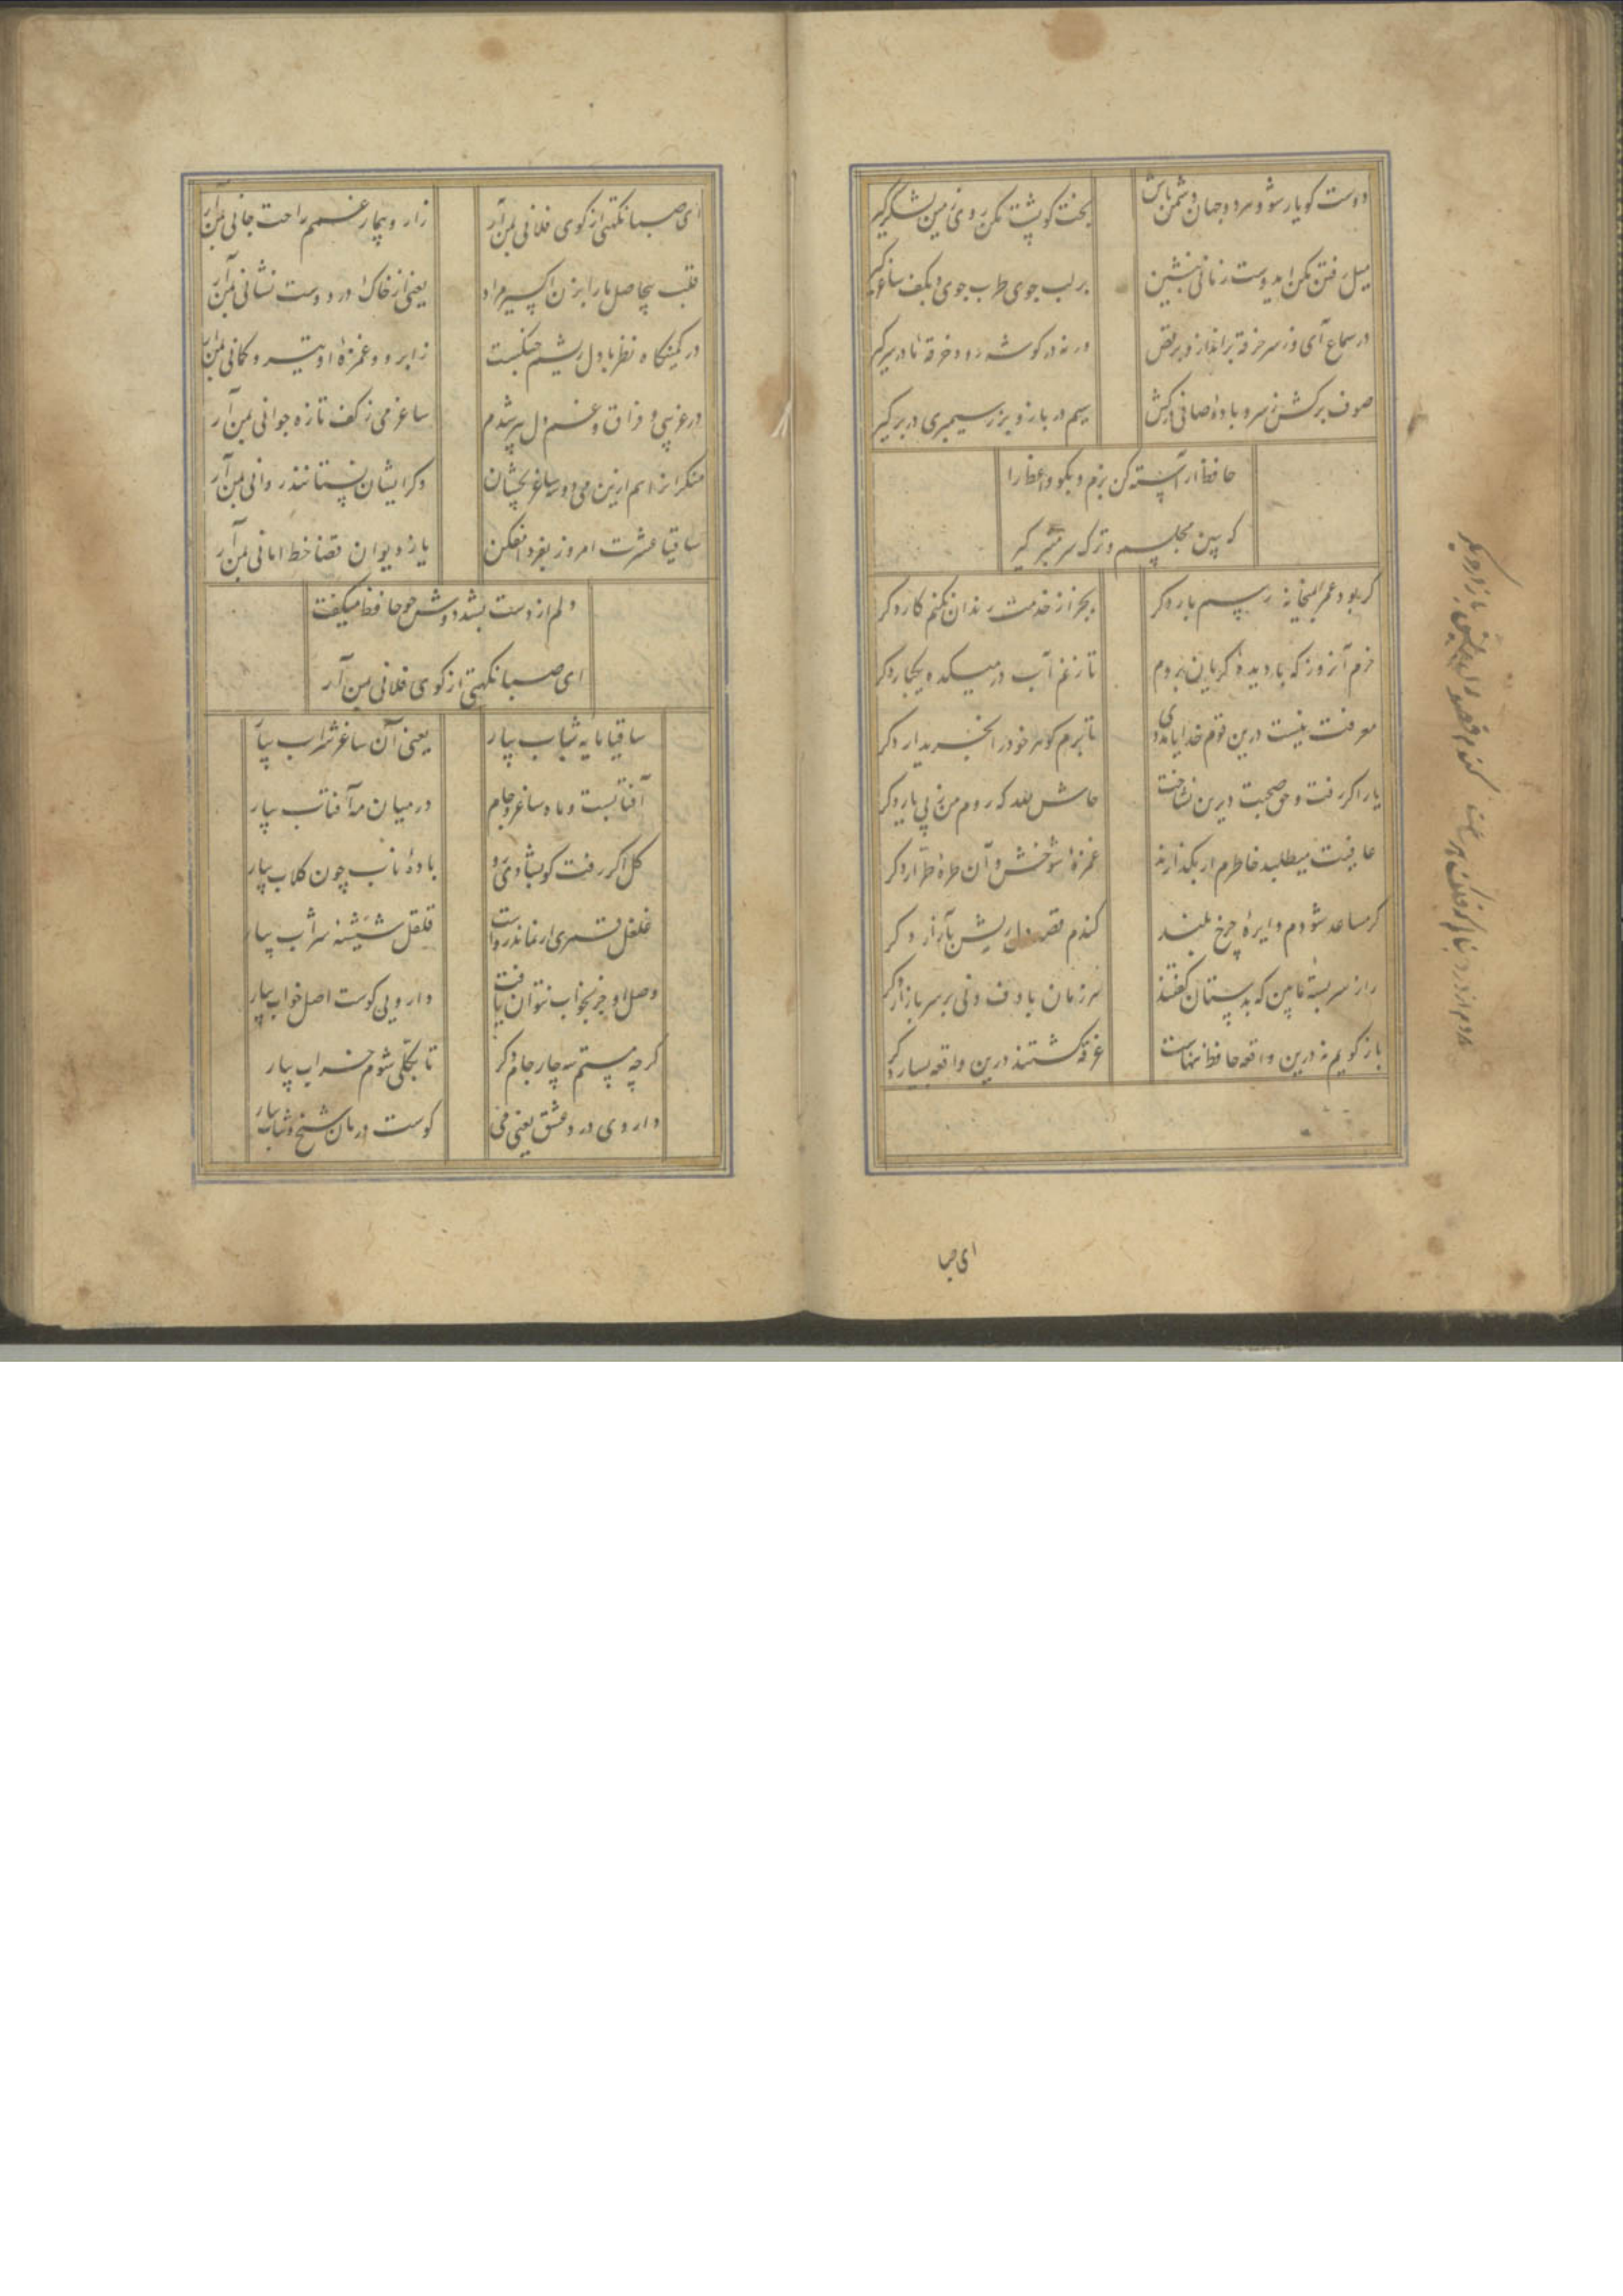 دوست کو یار شو و هر دو جهان دشمن باش بخت کو پشت مکن روی زمین لشکر گیر
میل رفتن مکن ای دوست زمانی بنشین بر لب جوی طرب جوی و بکف ساغر گیر
در سماع آی و ز سر خرقه برانداز و برقص ورنه در کوشه رو و خرقهٔ ما در سر گیر
صوف برکش ز سر و بادهٔ صافی درکش سیم در باز و بزر سیمبری در بر گیر
حافظ آراسته کن بزم و بکو واعظ را
که ببین مجلسم و ترک سر منبر گیر
گر بود عمر بمیخانه رسم بار دگر بجز از خدمت رندان نکنم کار دگر
خرم آنروز که با دیدهٔ گریان بروم تا زنم آب در میکده یکبار دگر
معرفت نیست درین قوم خدایا مددی تا برم گوهر خود را بخریدار دگر
یار اگر رفت و حق صحبت دیرین نشناخت حاش لله که روم من ز پی یار دگر
عافیت میطلبد خاطرم ار بگذارند غمزهٔ شوخش و آن طرهٔ طرار دگر
گر مساعد شودم دایرهٔ چرخ بلند کندم قصد دل ریش بآزار دگر
راز سربستهٔ ما بین که بدستان گفتند هر زمان با دف و نی بر سر بازار دگر
باز گویم نه درین واقعه حافظ تنهاست غرقه گشتند درین واقعه بسیار دگر
ای صبا
ای صبا نکهتی از کوی فلانی بمن آر زار و بیمار غمم راحت جانی بمن آر
قلب بیحاصل ما را بزن اکسیر مراد یعنی از خاک در دوست نشانی بمن آر
در کمینگاه نظر با دل ریشم جنگست ز ابرو و غمزهٔ او تیر و کمانی بمن آر
در غریبی و فراق و غم دل پیر شدم ساغر می ز کف تازه جوانی بمن آر
منکرانرا هم ازین می دو سه ساغر بچشان وگر ایشان نستانند روانی بمن آر
ساقیا عشرت امروز بفردا مفکن یا ز دیوان قضا خط امانی بمن آر
دلم از دست بشد دوش چو حافظ میگفت
ای صبا نکهتی از کوی فلانی بمن آر
ساقیا مایهٔ شباب بیار یعنی آن ساغر شراب بیار
آفتابست و ماه ساغر و جام در میان مه آفتاب بیار
گل اگر رفت گو بشادی رو بادهٔ ناب چون گلاب بیار
غلغل قمری ار نماند رواست قلقل شیشهٔ شراب بیار
وصل او جز بخواب نتوان یافت دارویی کوست اصل خواب بیار
گرچه مستم سه چار جام دگر تا بکلی شوم خراب بیار
داروی درد عشق یعنی می کوست درمان شیخ و شاب بیار